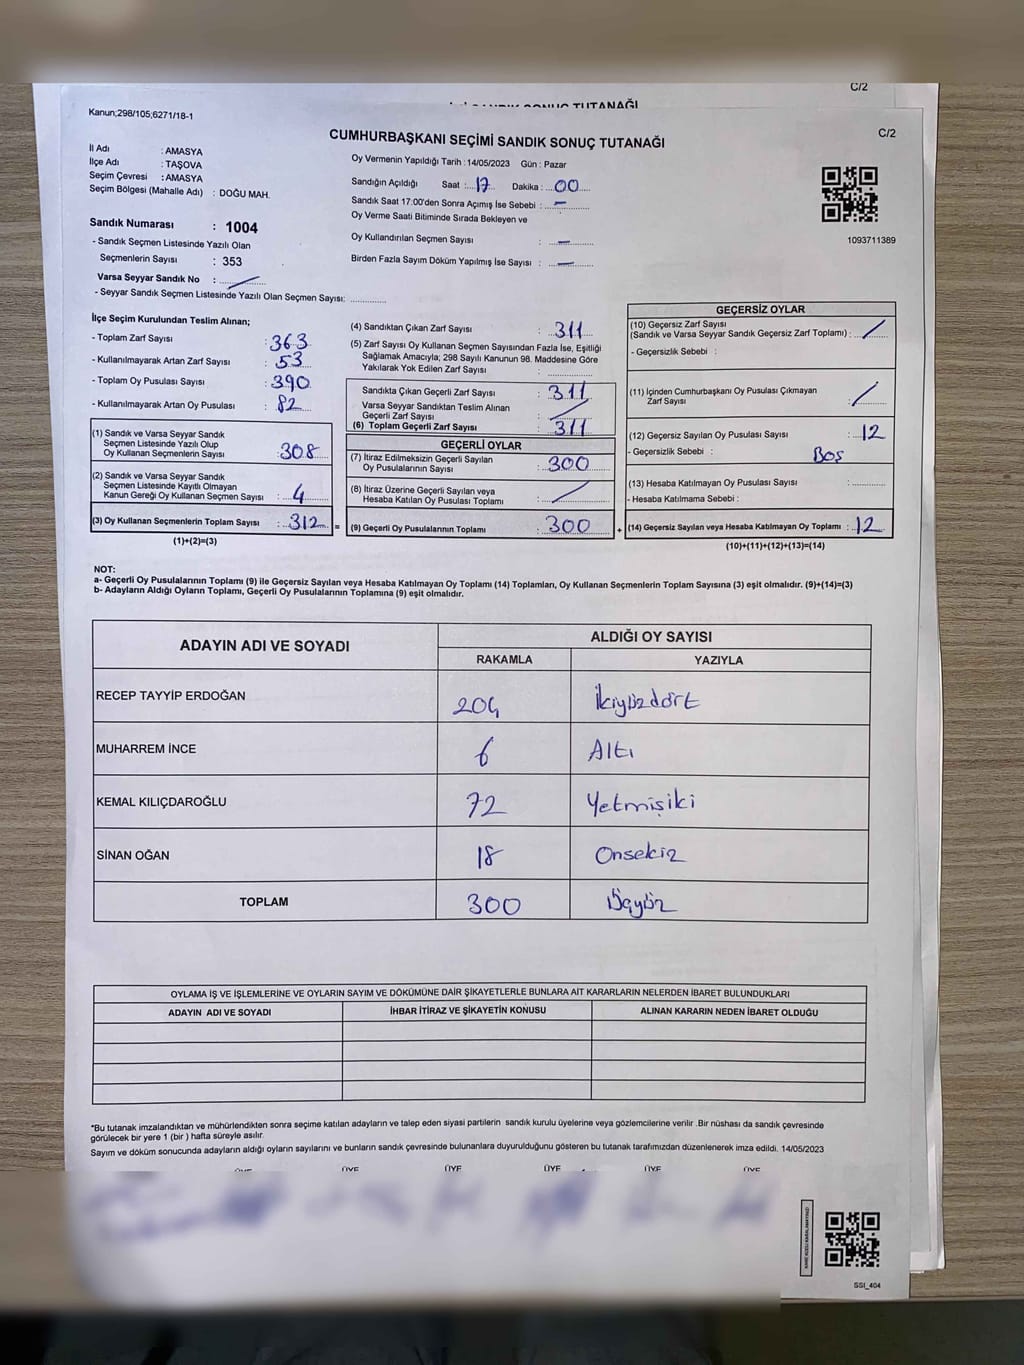 C/2
SANDIK SONUÇ TUTANAĞI
Kanun;298/105;6271/18-1
CUMHURBAŞKANI SEÇİMİ SANDIK SONUÇ TUTANAĞI
C/2
İl Adı : AMASYA
İlçe Adı : TAŞOVA
Seçim Çevresi : AMASYA
Seçim Bölgesi (Mahalle Adı) : DOĞU MAH.
Oy Vermenin Yapıldığı Tarih : 14/05/2023 Gün : Pazar
Sandığın Açıldığı Saat : 17 Dakika : 00
Sandık Saat 17.00'den Sonra Açımış İse Sebebi : –
Oy Verme Saati Bitiminde Sırada Bekleyen ve
Oy Kullandırılan Seçmen Sayısı : –
Birden Fazla Sayım Döküm Yapılmış İse Sayısı : –
1093711389
Sandık Numarası : 1004
- Sandık Seçmen Listesinde Yazılı Olan
Seçmenlerin Sayısı : 353
Varsa Seyyar Sandık No : /
- Seyyar Sandık Seçmen Listesinde Yazılı Olan Seçmen Sayısı: ............
İlçe Seçim Kurulundan Teslim Alınan;
- Toplam Zarf Sayısı : 363
- Kullanılmayarak Artan Zarf Sayısı : 53
- Toplam Oy Pusulası Sayısı : 390
- Kullanılmayarak Artan Oy Pusulası : 82
(1) Sandık ve Varsa Seyyar Sandık
Seçmen Listesinde Yazılı Olup
Oy Kullanan Seçmenlerin Sayısı : 308
(2) Sandık ve Varsa Seyyar Sandık
Seçmen Listesinde Kayıtlı Olmayan
Kanun Gereği Oy Kullanan Seçmen Sayısı : 4
(3) Oy Kullanan Seçmenlerin Toplam Sayısı : 312 =
(1)+(2)=(3)
(4) Sandıktan Çıkan Zarf Sayısı : 311
(5) Zarf Sayısı Oy Kullanan Seçmen Sayısından Fazla İse, Eşitliği
Sağlamak Amacıyla; 298 Sayılı Kanunun 98. Maddesine Göre
Yakılarak Yok Edilen Zarf Sayısı : ............
Sandıkta Çıkan Geçerli Zarf Sayısı : 311
Varsa Seyyar Sandıktan Teslim Alınan
Geçerli Zarf Sayısı : /
(6) Toplam Geçerli Zarf Sayısı : 311
GEÇERLİ OYLAR
(7) İtiraz Edilmeksizin Geçerli Sayılan
Oy Pusulalarının Sayısı : 300
(8) İtiraz Üzerine Geçerli Sayılan veya
Hesaba Katılan Oy Pusulası Toplamı : /
(9) Geçerli Oy Pusulalarının Toplamı : 300 +
GEÇERSİZ OYLAR
(10) Geçersiz Zarf Sayısı
(Sandık ve Varsa Seyyar Sandık Geçersiz Zarf Toplamı) : /
- Geçersizlik Sebebi :
(11) İçinden Cumhurbaşkanı Oy Pusulası Çıkmayan
Zarf Sayısı : /
(12) Geçersiz Sayılan Oy Pusulası Sayısı : 12
- Geçersizlik Sebebi : Boş
(13) Hesaba Katılmayan Oy Pusulası Sayısı : ............
- Hesaba Katılmama Sebebi :
(14) Geçersiz Sayılan veya Hesaba Katılmayan Oy Toplamı : 12
(10)+(11)+(12)+(13)=(14)
NOT:
a- Geçerli Oy Pusulalarının Toplamı (9) ile Geçersiz Sayılan veya Hesaba Katılmayan Oy Toplamı (14) Toplamları, Oy Kullanan Seçmenlerin Toplam Sayısına (3) eşit olmalıdır. (9)+(14)=(3)
b- Adayların Aldığı Oyların Toplamı, Geçerli Oy Pusulalarının Toplamına (9) eşit olmalıdır.
ADAYIN ADI VE SOYADI ALDIĞI OY SAYISI
RAKAMLA YAZIYLA
RECEP TAYYİP ERDOĞAN 204 İkiyüzdört
MUHARREM İNCE 6 Altı
KEMAL KILIÇDAROĞLU 72 Yetmişiki
SİNAN OĞAN 18 Onsekiz
TOPLAM 300 Üçyüz
OYLAMA İŞ VE İŞLEMLERİNE VE OYLARIN SAYIM VE DÖKÜMÜNE DAİR ŞİKAYETLERLE BUNLARA AİT KARARLARIN NELERDEN İBARET BULUNDUKLARI
ADAYIN ADI VE SOYADI İHBAR İTİRAZ VE ŞİKAYETİN KONUSU ALINAN KARARIN NEDEN İBARET OLDUĞU
*Bu tutanak imzalandıktan ve mühürlendikten sonra seçime katılan adayların ve talep eden siyasi partilerin sandık kurulu üyelerine veya gözlemcilerine verilir .Bir nüshası da sandık çevresinde
görülecek bir yere 1 (bir ) hafta süreyle asılır.
Sayım ve döküm sonucunda adayların aldığı oyların sayılarını ve bunların sandık çevresinde bulunanlara duyurulduğunu gösteren bu tutanak tarafımızdan düzenlenerek imza edildi. 14/05/2023
ÜYE ÜYE ÜYE ÜYE ÜYE ÜYE
SSI_404